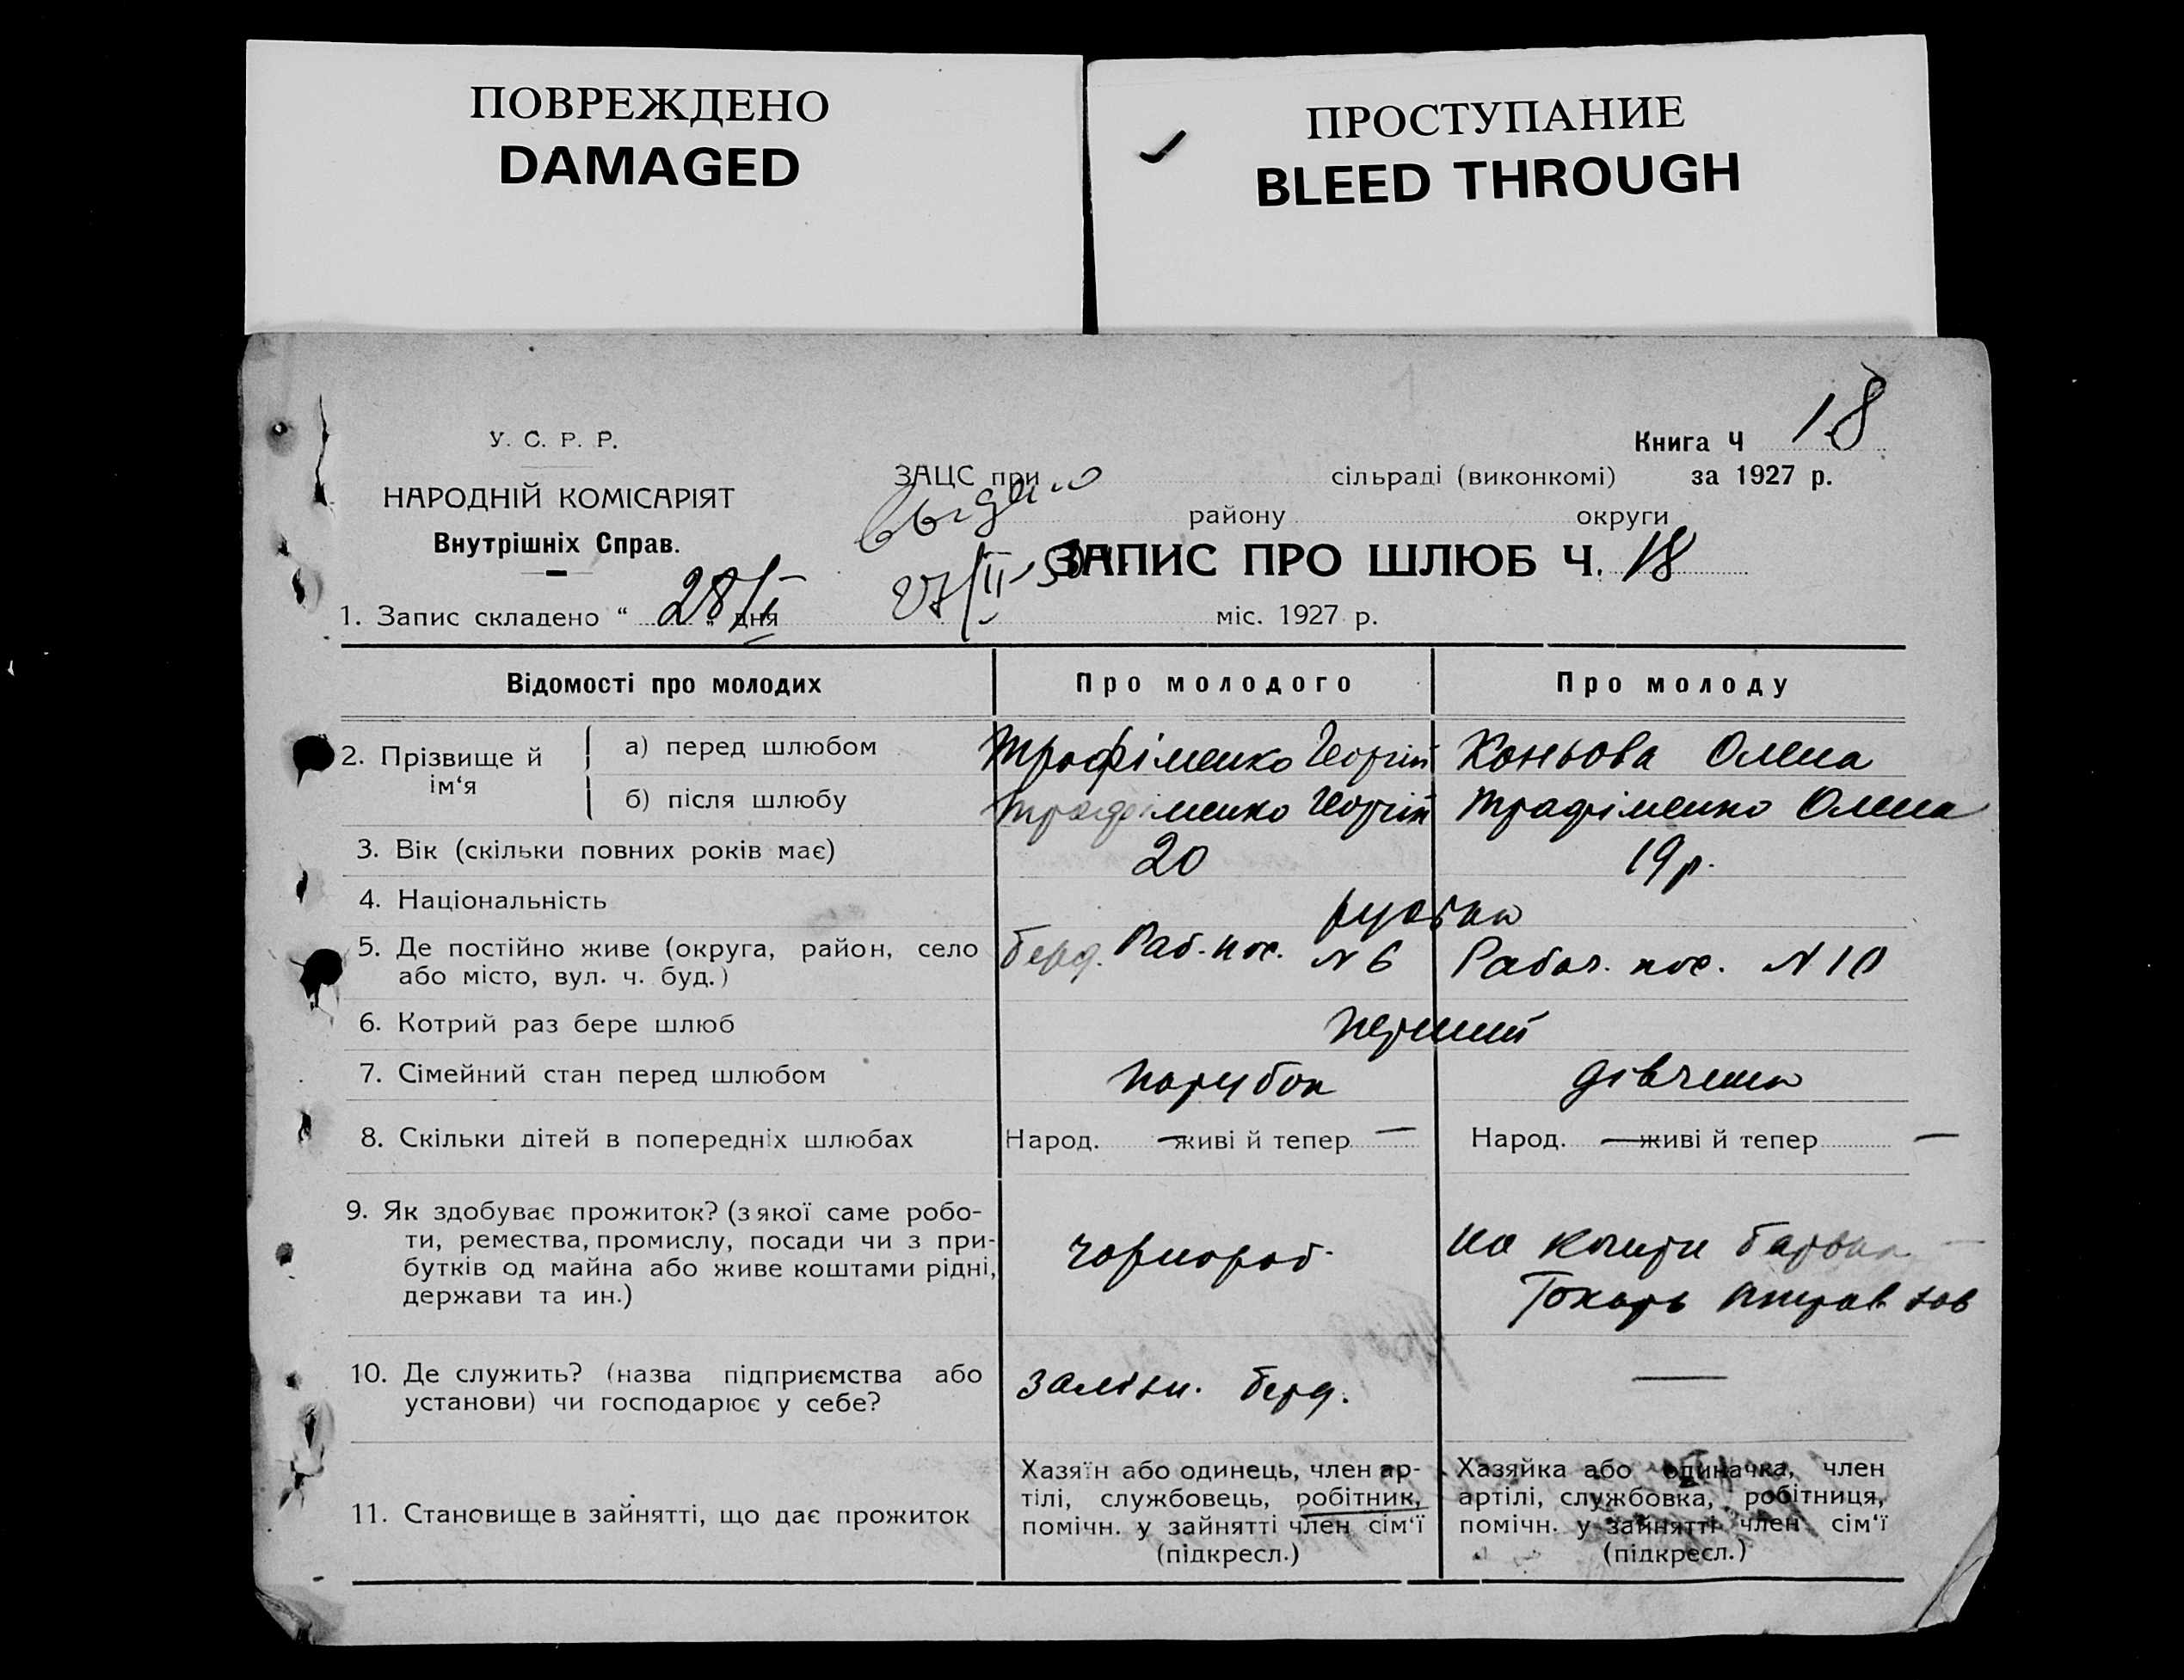 ПОВРЕЖДЕНО
DAMAGED
ПРОСТУПАНИЕ
BLEED THROUGH
У. С. Р. Р.
НАРОДНІЙ КОМІСАРІЯТ
Внутрішніх Справ.
Книга Ч 18
ЗАЦС при сільраді (виконкомі) за 1927 р.
выдано
району округи
ЗАПИС ПРО ШЛЮБ Ч. 18
27/II-50
1. Запис складено “ 28/I „ дня міс. 1927 р.
Відомості про молодих Про молодого Про молоду
2. Прізвище й ім‘я
а) перед шлюбом Трофіменко Георгій Коньова Олена
б) після шлюбу Трофіменко Георгій Трофіменко Олена
3. Вік (скільки повних років має) 20 19 р.
4. Національність руські
5. Де постійно живе (округа, район, село
або місто, вул. ч. буд.)
Берд. Раб. пос. N 6 Рабоч. пос. N 10
6. Котрий раз бере шлюб перший
7. Сімейний стан перед шлюбом парубок дівчина
8. Скільки дітей в попередніх шлюбах Народ. — живі й тепер — Народ. — живі й тепер —
9. Як здобуває прожиток? (з якої саме робо-
ти, ремества, промислу, посади чи з при-
бутків од майна або живе коштами рідні,
держави та ин.)
чорнороб.
на кошти
Токарь
10. Де служить? (назва підприємства або
установи) чи господарює у себе?
залізн. Берд. —
11. Становище в зайнятті, що дає прожиток
Хазяїн або одинець, член ар-
тілі, службовець, робітник,
помічн. у зайнятті член сім‘ї
(підкресл.)
Хазяйка або одиначка, член
артілі, службовка, робітниця,
помічн. у зайнятті член сім‘ї
(підкресл.)